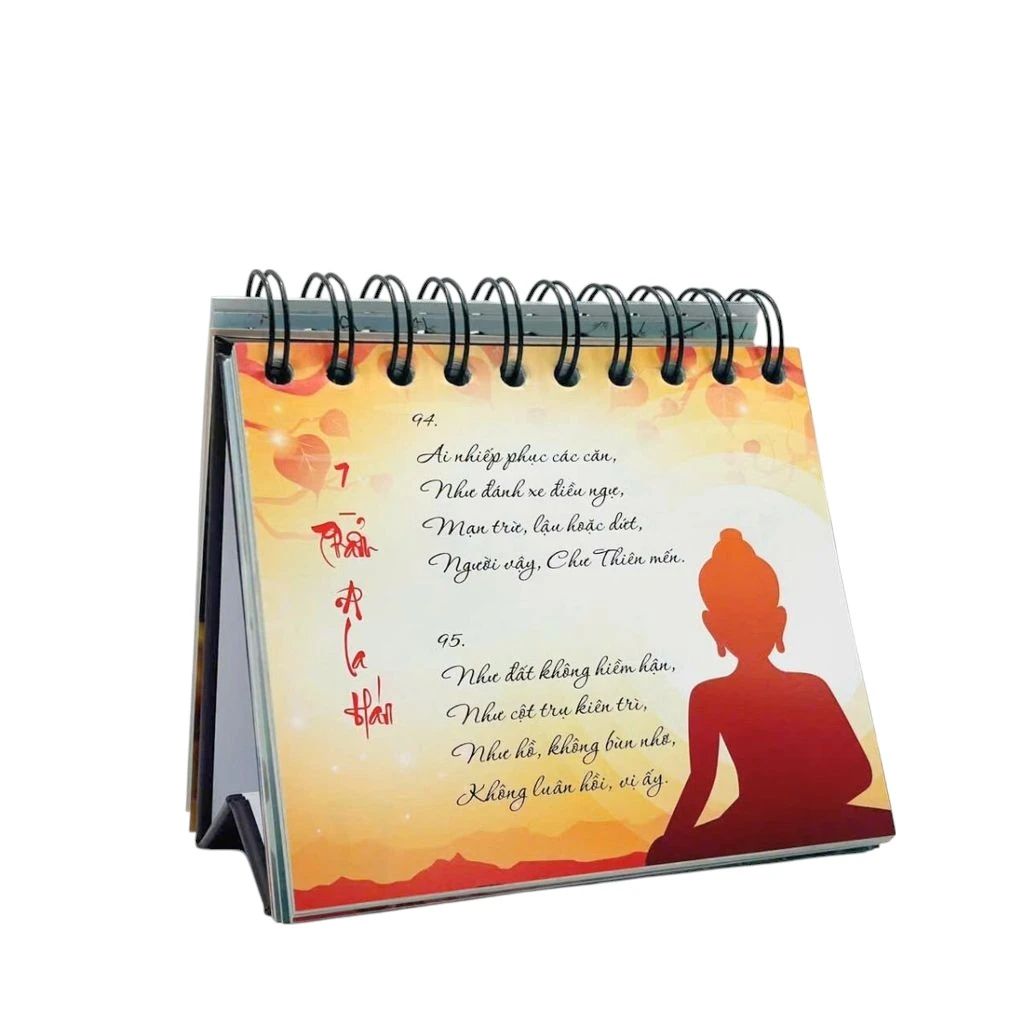 7
-
Phẩm
A
la
Hán
94.
Ai nhiếp phục các căn,
Như đánh xe điều ngự,
Mạn trừ, lậu hoặc dứt,
Người vậy, Chư Thiên mến.
95.
Như đất không hiềm hận,
Như cột trụ kiên trì,
Như hồ, không bùn nhơ,
Không luân hồi, vị ấy.